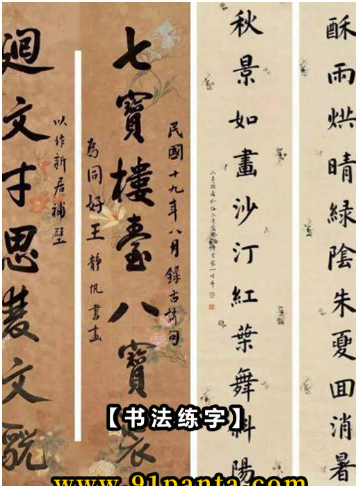 酥雨烘晴緑陰朱夏囬消暑
秋景如畫沙汀紅葉舞斜陽
民國十九年八月錄古詩句
七寶樓臺八寶裝
為同好王靜帆書畫
以作新居補壁
迴文才思慧文
【书法练字】
www.91panta.com